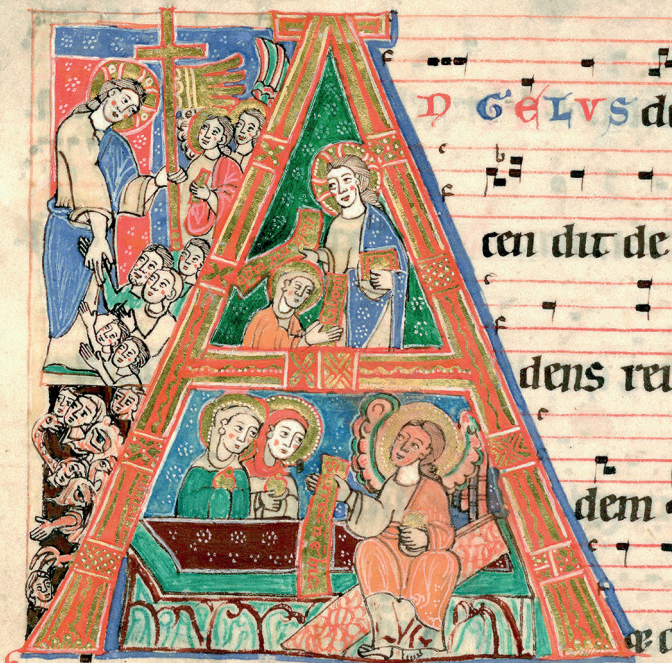 ANGELVS do
cen dit de
dens reu
dem